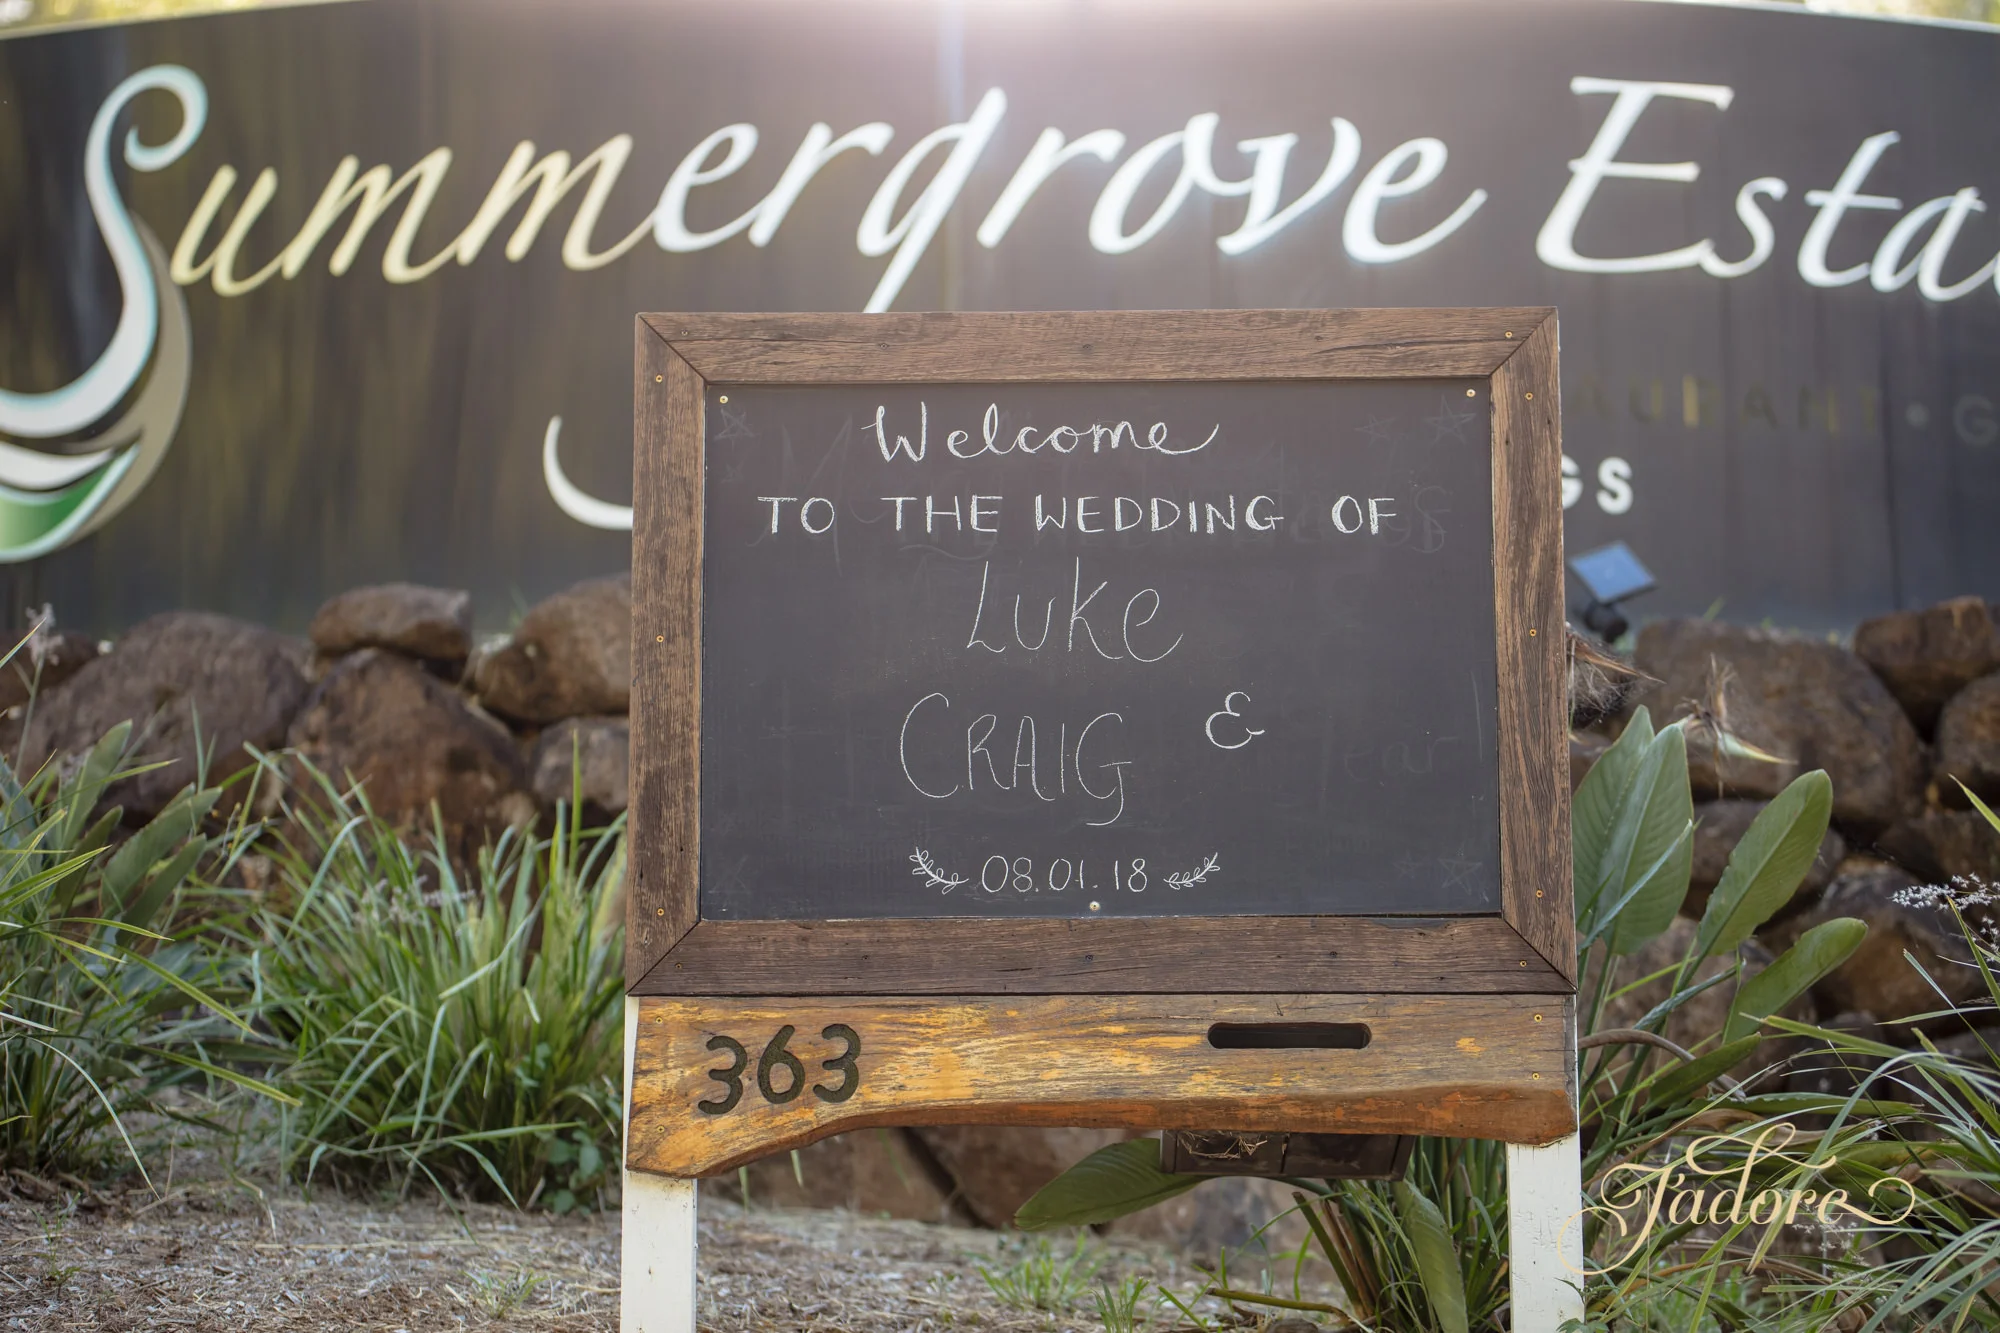 Summergrove Esta
GS
Welcome
TO THE WEDDING OF
Luke
CRAIG &
08.01.18
363
J'adore